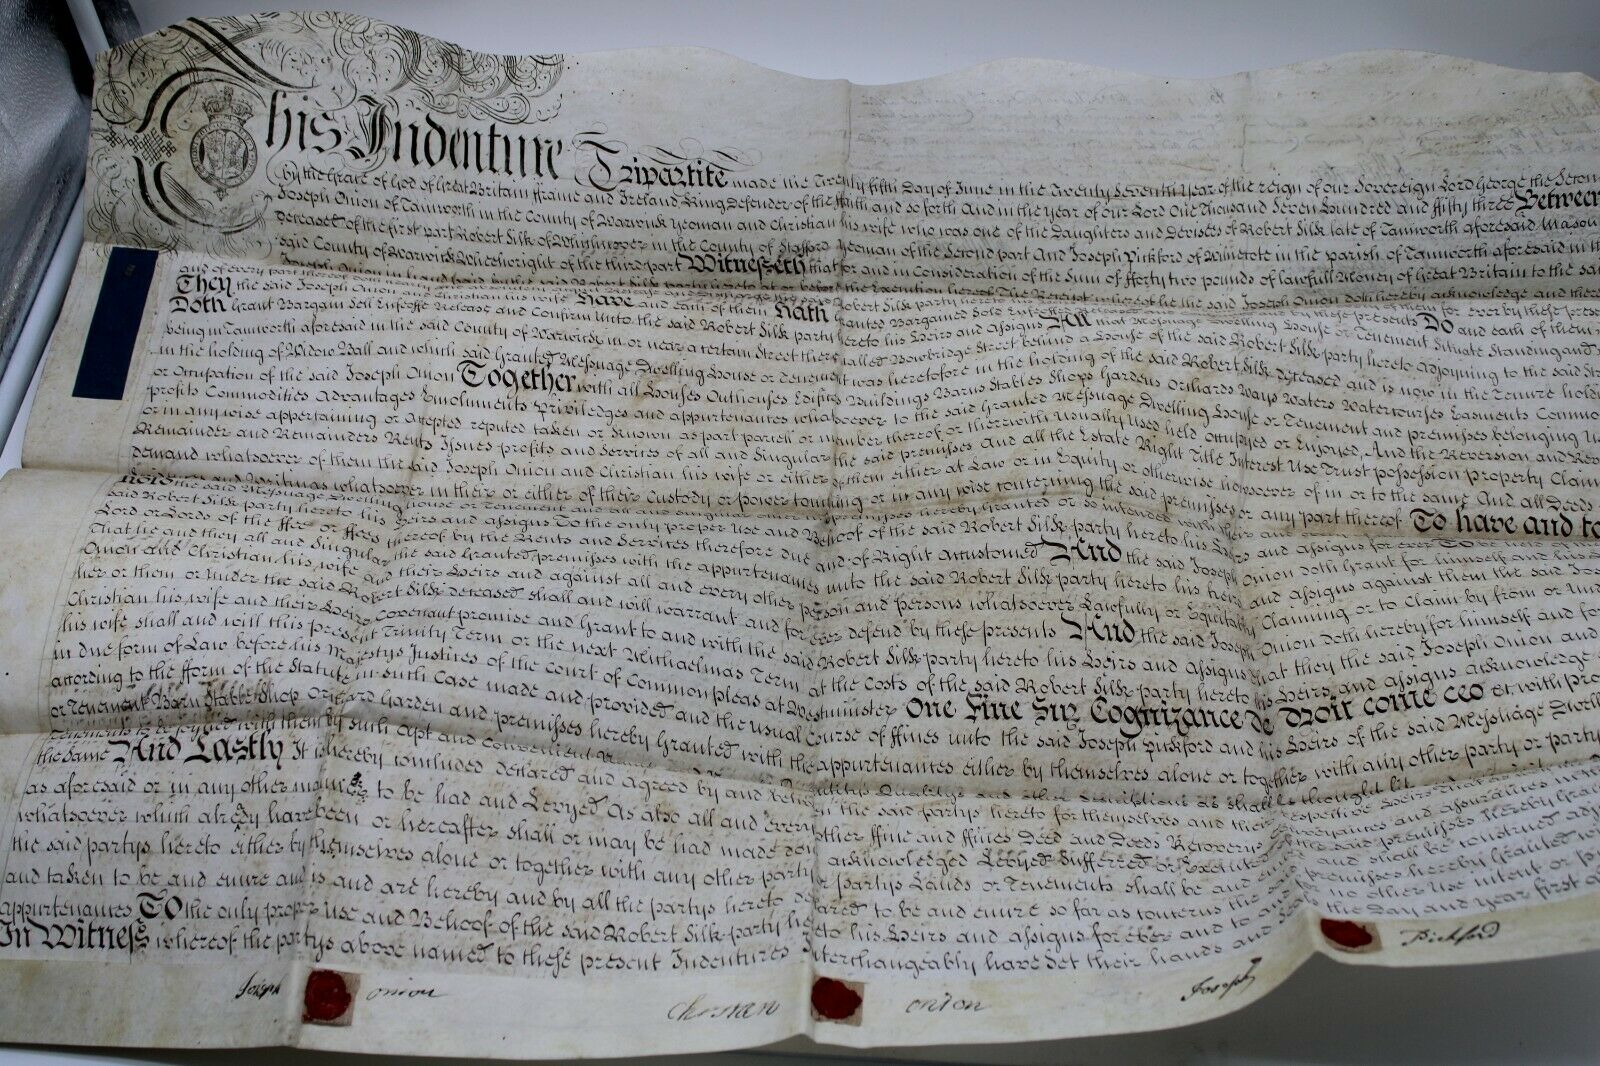 This Indenture Tripartite made the Twenty fifth Day of June in the Twenty Seventh Year of the reign of our Sovereign Lord George the Secon
by the Grace of God of Great Britain ffrance and Ireland King Defender of the ffaith and so forth And in the year of our Lord One Thousand Seven Hundred and ffifty three Between
Joseph Onion of Tanworth in the County of Warwick Yeoman and Christian his wife who was one of the Daughters and Devisees of Robert Silk late of Tanworth aforesaid Mason
deceased of the first part Robert Silk of in the County of Stafford Yeoman of the Second part And Joseph Pickford of in the parish of Tanworth aforesaid in th
said County of Warwick Wheelwright of the third part Witnesseth that for and in Consideration of the Sum of fforty two pounds of lawfull Money of Great Britain to the said
Joseph Onion in hand paid by the said Robert Silk party hereto at or before the Execution hereof The Receipt whereof he the said Joseph Onion doth hereby acknowledge and there
and of every part thereof
They the said Joseph Onion and Christian his wife Have and each of them Hath Granted Bargained Sold and by these presents Do and each of them
Doth Grant Bargain Sell Enfeoffe Release and Confirm unto the said Robert Silk party hereto his Heirs and Assigns All that Messuage Dwelling House or Tenement Situate Standing and
being in Tanworth aforesaid in the said County of Warwick in or near a certain Street there called Bowbridge Street behind a House of the said Robert Silk party hereto adjoyning to the said Str
in the holding of Widow Ball and which said Granted Messuage Dwelling House or Tenement was heretofore in the holding of the said Robert Silk deceased and is now in the Tenure hold
or Occupation of the said Joseph Onion Together with all Houses Outhouses Edifices Buildings Barns Stables Shops Gardens Orchards Ways Waters Watercourses Easments Commo
profits Commodities Advantages Emoluments Priviledges and appurtenances whatsoever to the said Granted Messuage Dwelling House or Tenement and premisses belonging
or in anywise appertaining or Accepted reputed taken or known as part parcell or member thereof or therewith usually used held occupyed or Enjoyed, And the Reversion and Rever
Remainder and Remainders Rents Issues profits and Services of all and Singular the said premisses And all the Estate Right Title Interest Use Trust possession Property Claim
demand whatsoever of them the said Joseph Onion and Christian his wife or either of them either at Law or in Equity or otherwise howsoever of in or to the same And all Deeds
and Writings whatsoever in their or either of their Custody or power touching or in any wise concerning the said premisses or any part thereof To have and to
hold the said Messuage Dwelling House or Tenement and all and singular other the premisses hereby Granted or so intended with their
said Robert Silk party hereto his Heirs and assigns To the only proper use and Behoof of the said Robert Silk party hereto his Heirs and assigns for ever To
Lord or Lords of the ffee or ffees thereof by the Rents and Services therefore due and of Right accustomed And the said Joseph Onion doth Grant for himself and his
That he and they all and Singular the said Granted premisses with the appurtenances unto the said Robert Silk party hereto his heirs and assigns against them the said Jos
Onion and Christian his wife and their Heirs and against all and every other person and persons whatsoever Lawfully or Equitably Claiming or to Claim by from or Und
her or them or under the said Robert Silk deceased shall and will warrant and for ever defend by these presents And the said Joseph Onion doth hereby for himself and for
Christian his wife and their Heirs Covenant promise and Grant to and with the said Robert Silk party hereto his Heirs and assigns That they the said Joseph Onion and
his wife shall and will this present Trinity Term or the next Michaelmas Term at the Costs of the said Robert Silk party hereto his Heirs and assigns acknowledge
in due form of Law before his Majestys Justices of the Court of Common pleas at Westminster One Fine Sur Cognizance de Droit come ceo &c with pro
according to the fform of the Statute in such Case made and provided and the usual Course of ffines unto the said Joseph Pickford and his Heirs of the said Messuage Dwell
or Tenement Barn Stable Shop Orchard Garden and premisses hereby Granted with the appurtenances either by themselves alone or together with any other party or party
tenements to be joyned with them by such apt and convenient Quantitys Qualitys and other Discriptions as shall be thought fit
the same And Lastly It is hereby concluded declared and agreed by and between the said partys hereto for themselves and their respective Heirs
as aforesaid or in any other manner to be had and Levyed As also all and every other ffine and ffines Deed and Deeds Recoverys Conveyances and assurances
whatsoever which already have been or hereafter shall or may be had made done acknowledged Levyed Suffered or Executed the said premisses hereby Gra
the said partys hereto either by themselves alone or together with any other party or partys Lands or Tenements shall be and enure and shall be construed adj
and taken to be and enure and is and are hereby and by all the partys hereto declared to be and enure so far as concerns the premisses hereby Granted w
appurtenances To the only proper use and Behoof of the said Robert Silk party hereto his Heirs and assigns for ever and to and for no other use intent or p
In Witness whereof the partys above named to these present Indentures Interchangeably have set their hands and Seals the Day and Year first a
Joseph Onion
Christian Onion
Joseph Pickford